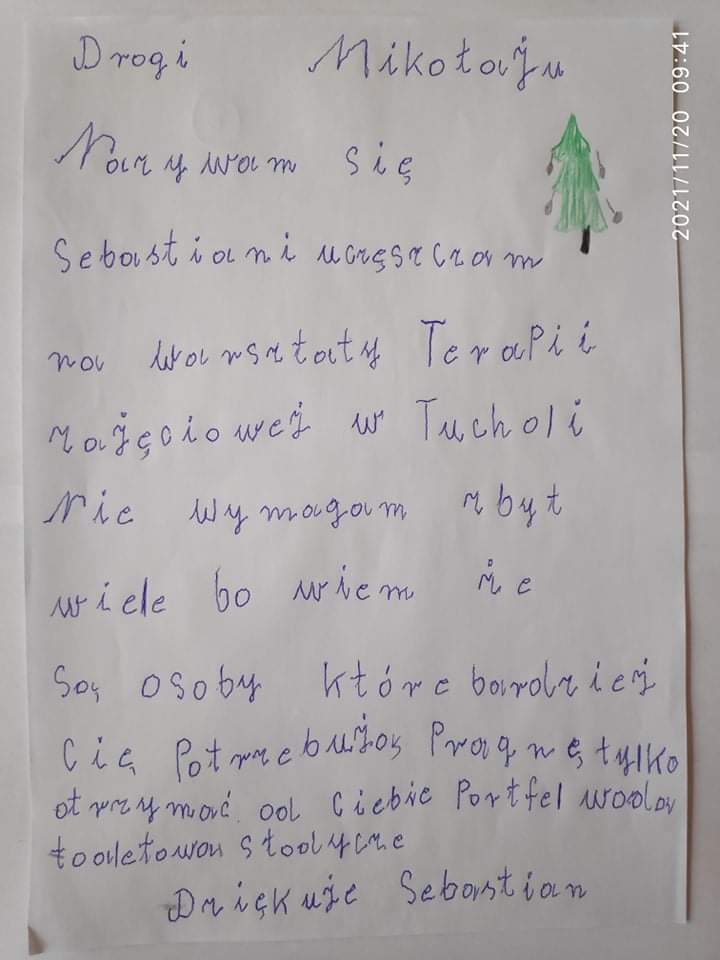 Drogi Mikołaju
Nazywam się
Sebastian i uczęszczam
na warsztaty Terapii
zajęciowej w Tucholi
Nie wymagam zbyt
wiele bo wiem że
Są osoby które bardziej
Cię Potrzebują Pragnę tylko
otrzymać od Ciebie Portfel woda
toaletowa słodycze
Dziękuje Sebastian
2021/11/20 09:41